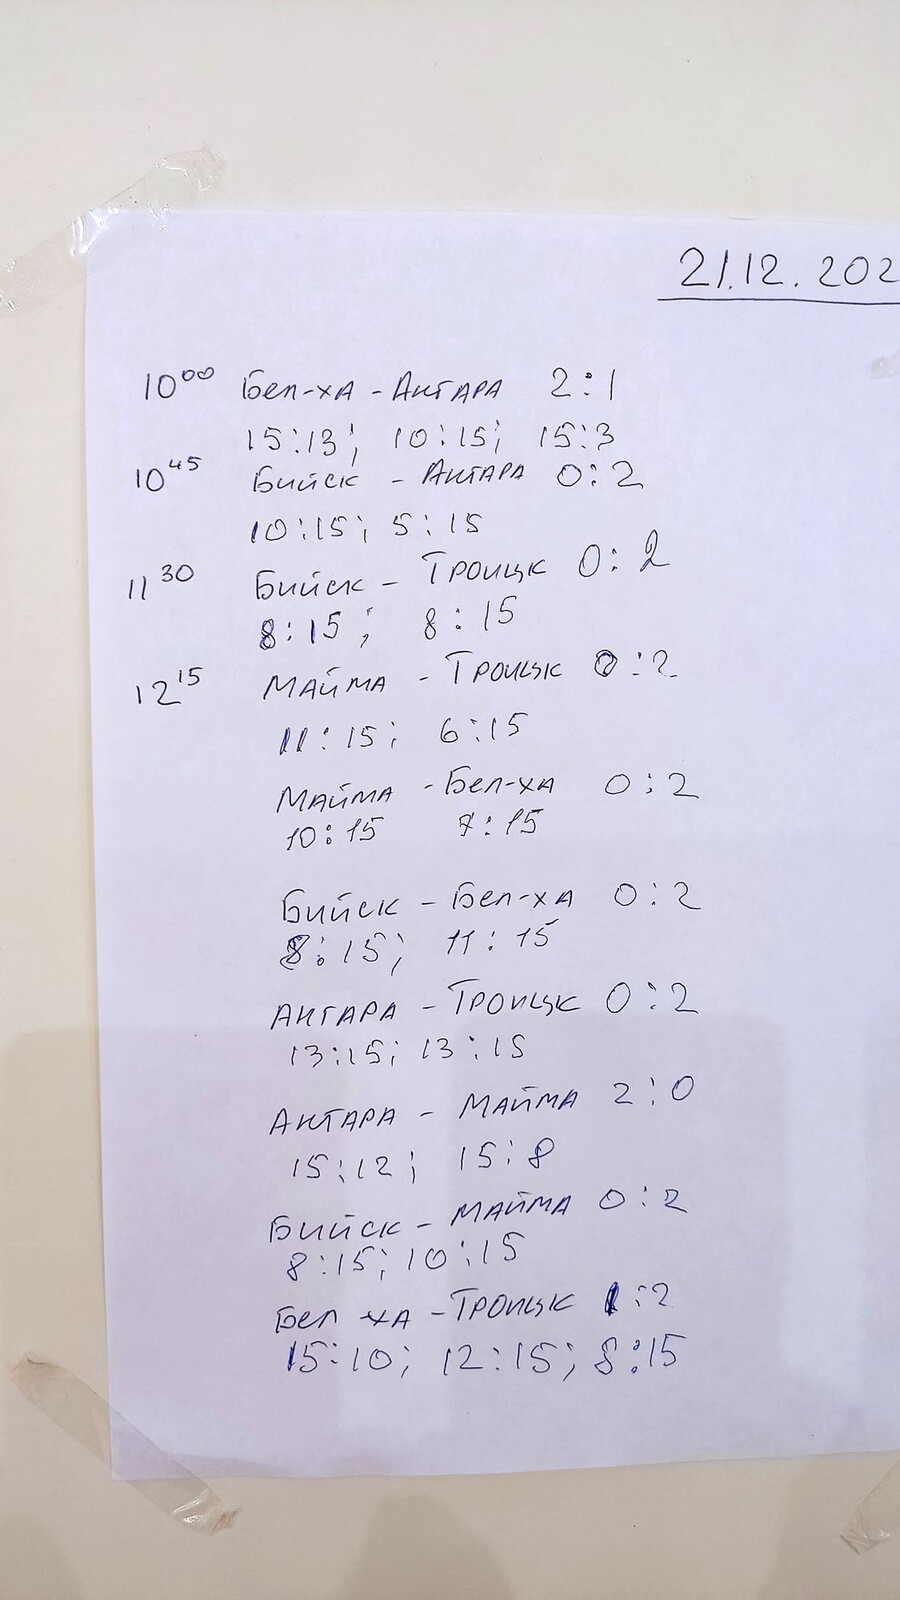 21.12.202
10⁰⁰ Бел-ха - Актара 2:1
15:13; 10:15; 15:3
10⁴⁵ Бийск - Актара 0:2
10:15; 5:15
11³⁰ Бийск - Троицк 0:2
8:15; 8:15
12¹⁵ Майма - Троицк 0:2
11:15; 6:15
Майма - Бел-ха 0:2
10:15 7:15
Бийск - Бел-ха 0:2
8:15; 11:15
Актара - Троицк 0:2
13:15; 13:15
Актара - Майма 2:0
15:12; 15:8
Бийск - Майма 0:2
8:15; 10:15
Бел ха - Троицк 1:2
15:10; 12:15; 8:15